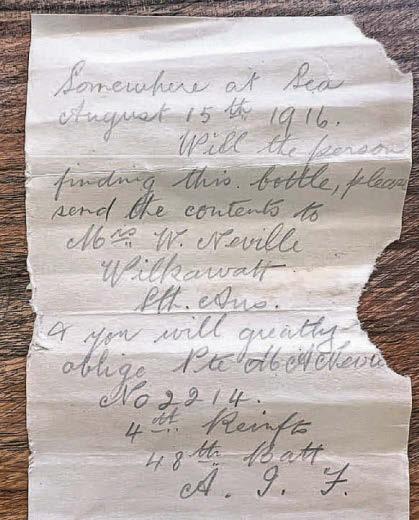 Somewhere at Sea
August 15th 1916.
Will the person
finding this. bottle, please
send the contents to
Mrs W. Neville
Wilkawatt
Sth. Aus.
& you will greatly
oblige Pte M A Nevil
No 2214.
4th Reinfts
48th Batt
A. I. F.